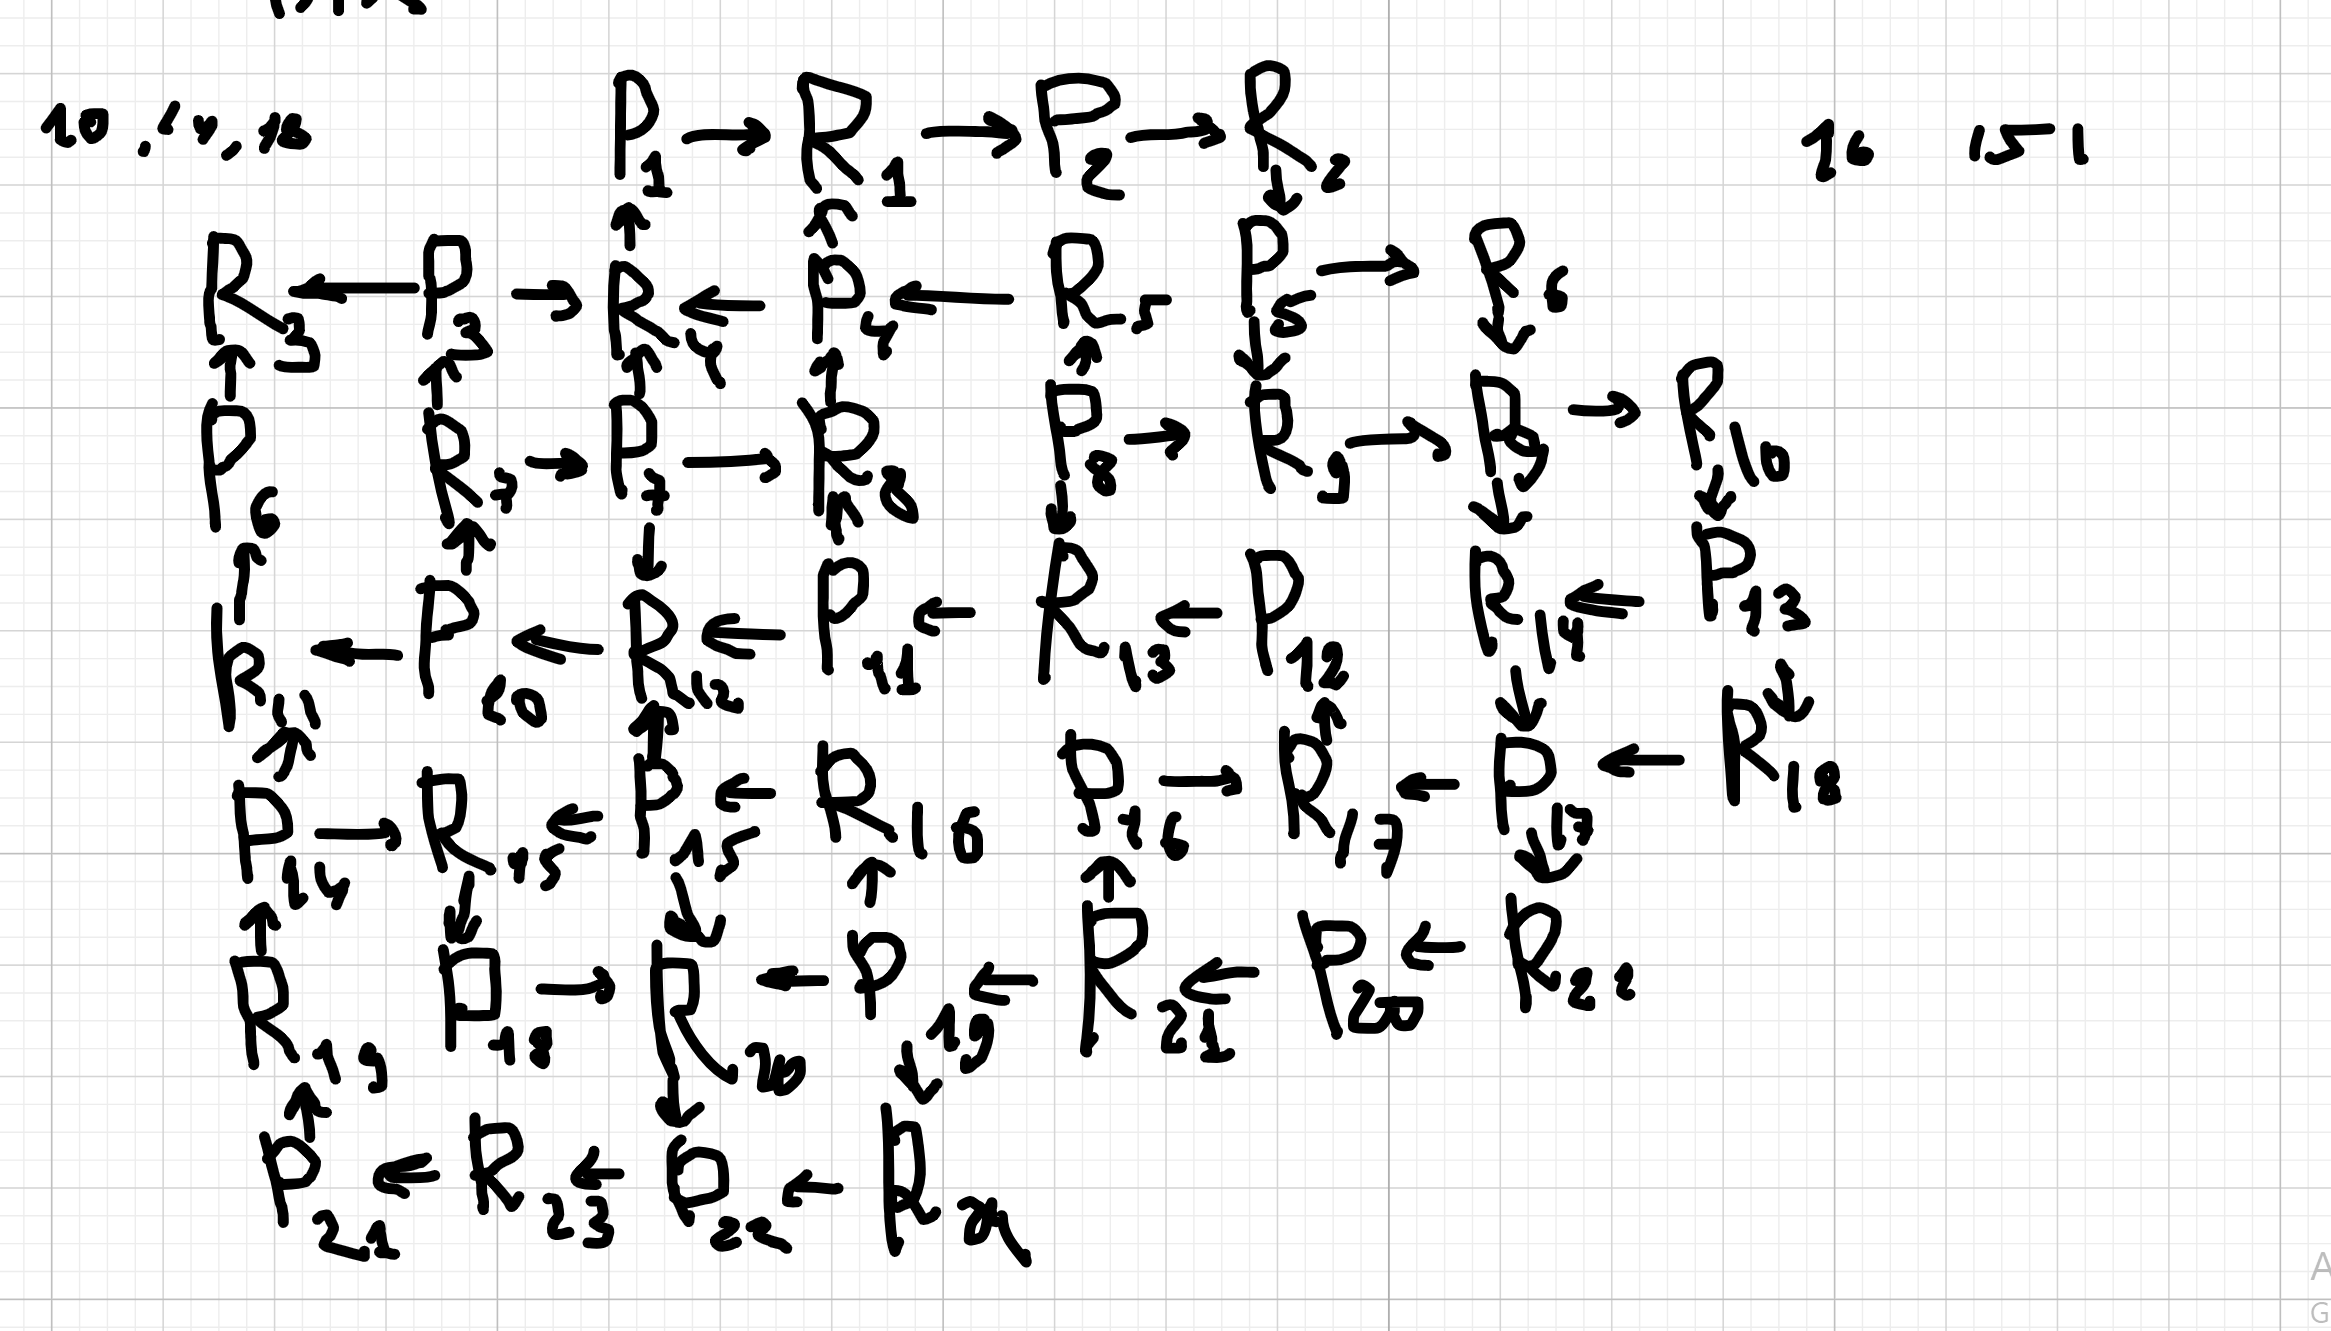 10, 14, 18 P1 → R1 → P2 → R2 16 15-1
↑ ↑ ↓
R3 ← P3 → R4 ← P4 ← R5 P5 → R6
↑ ↑ ↑ ↑ ↑ ↓ ↓
P6 R7 → P7 → R8 P8 → R9 → P9 → R10
↑ ↑ ↓ ↑ ↓ ↓ ↓
R11 ← P10 ← R12 ← P11 ← R13 ← P12 R14 ← P13
↑ ↑ ↑ ↓ ↓
P14 → R15 ← P15 ← R16 P16 → R17 ← P17 ← R18
↑ ↓ ↓ ↑ ↑ ↓
R19 P18 → R20 ← P19 ← R21 ← P20 ← R22
↑ ↓ ↓
P21 ← R23 ← P22 ← R24